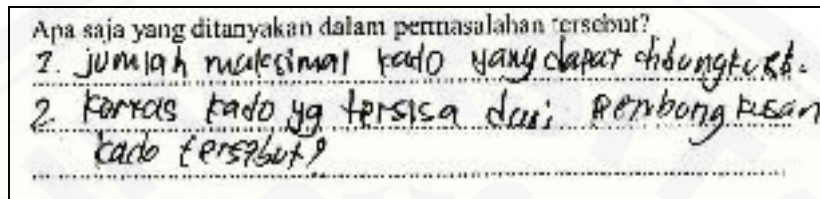 Apa saja yang ditanyakan dalam permasalahan tersebut?
1. jumlah maksimal kado yang dapat dibungkus.
2 kertas kado yg tersisa dari pembungkusan
kado tersebut?